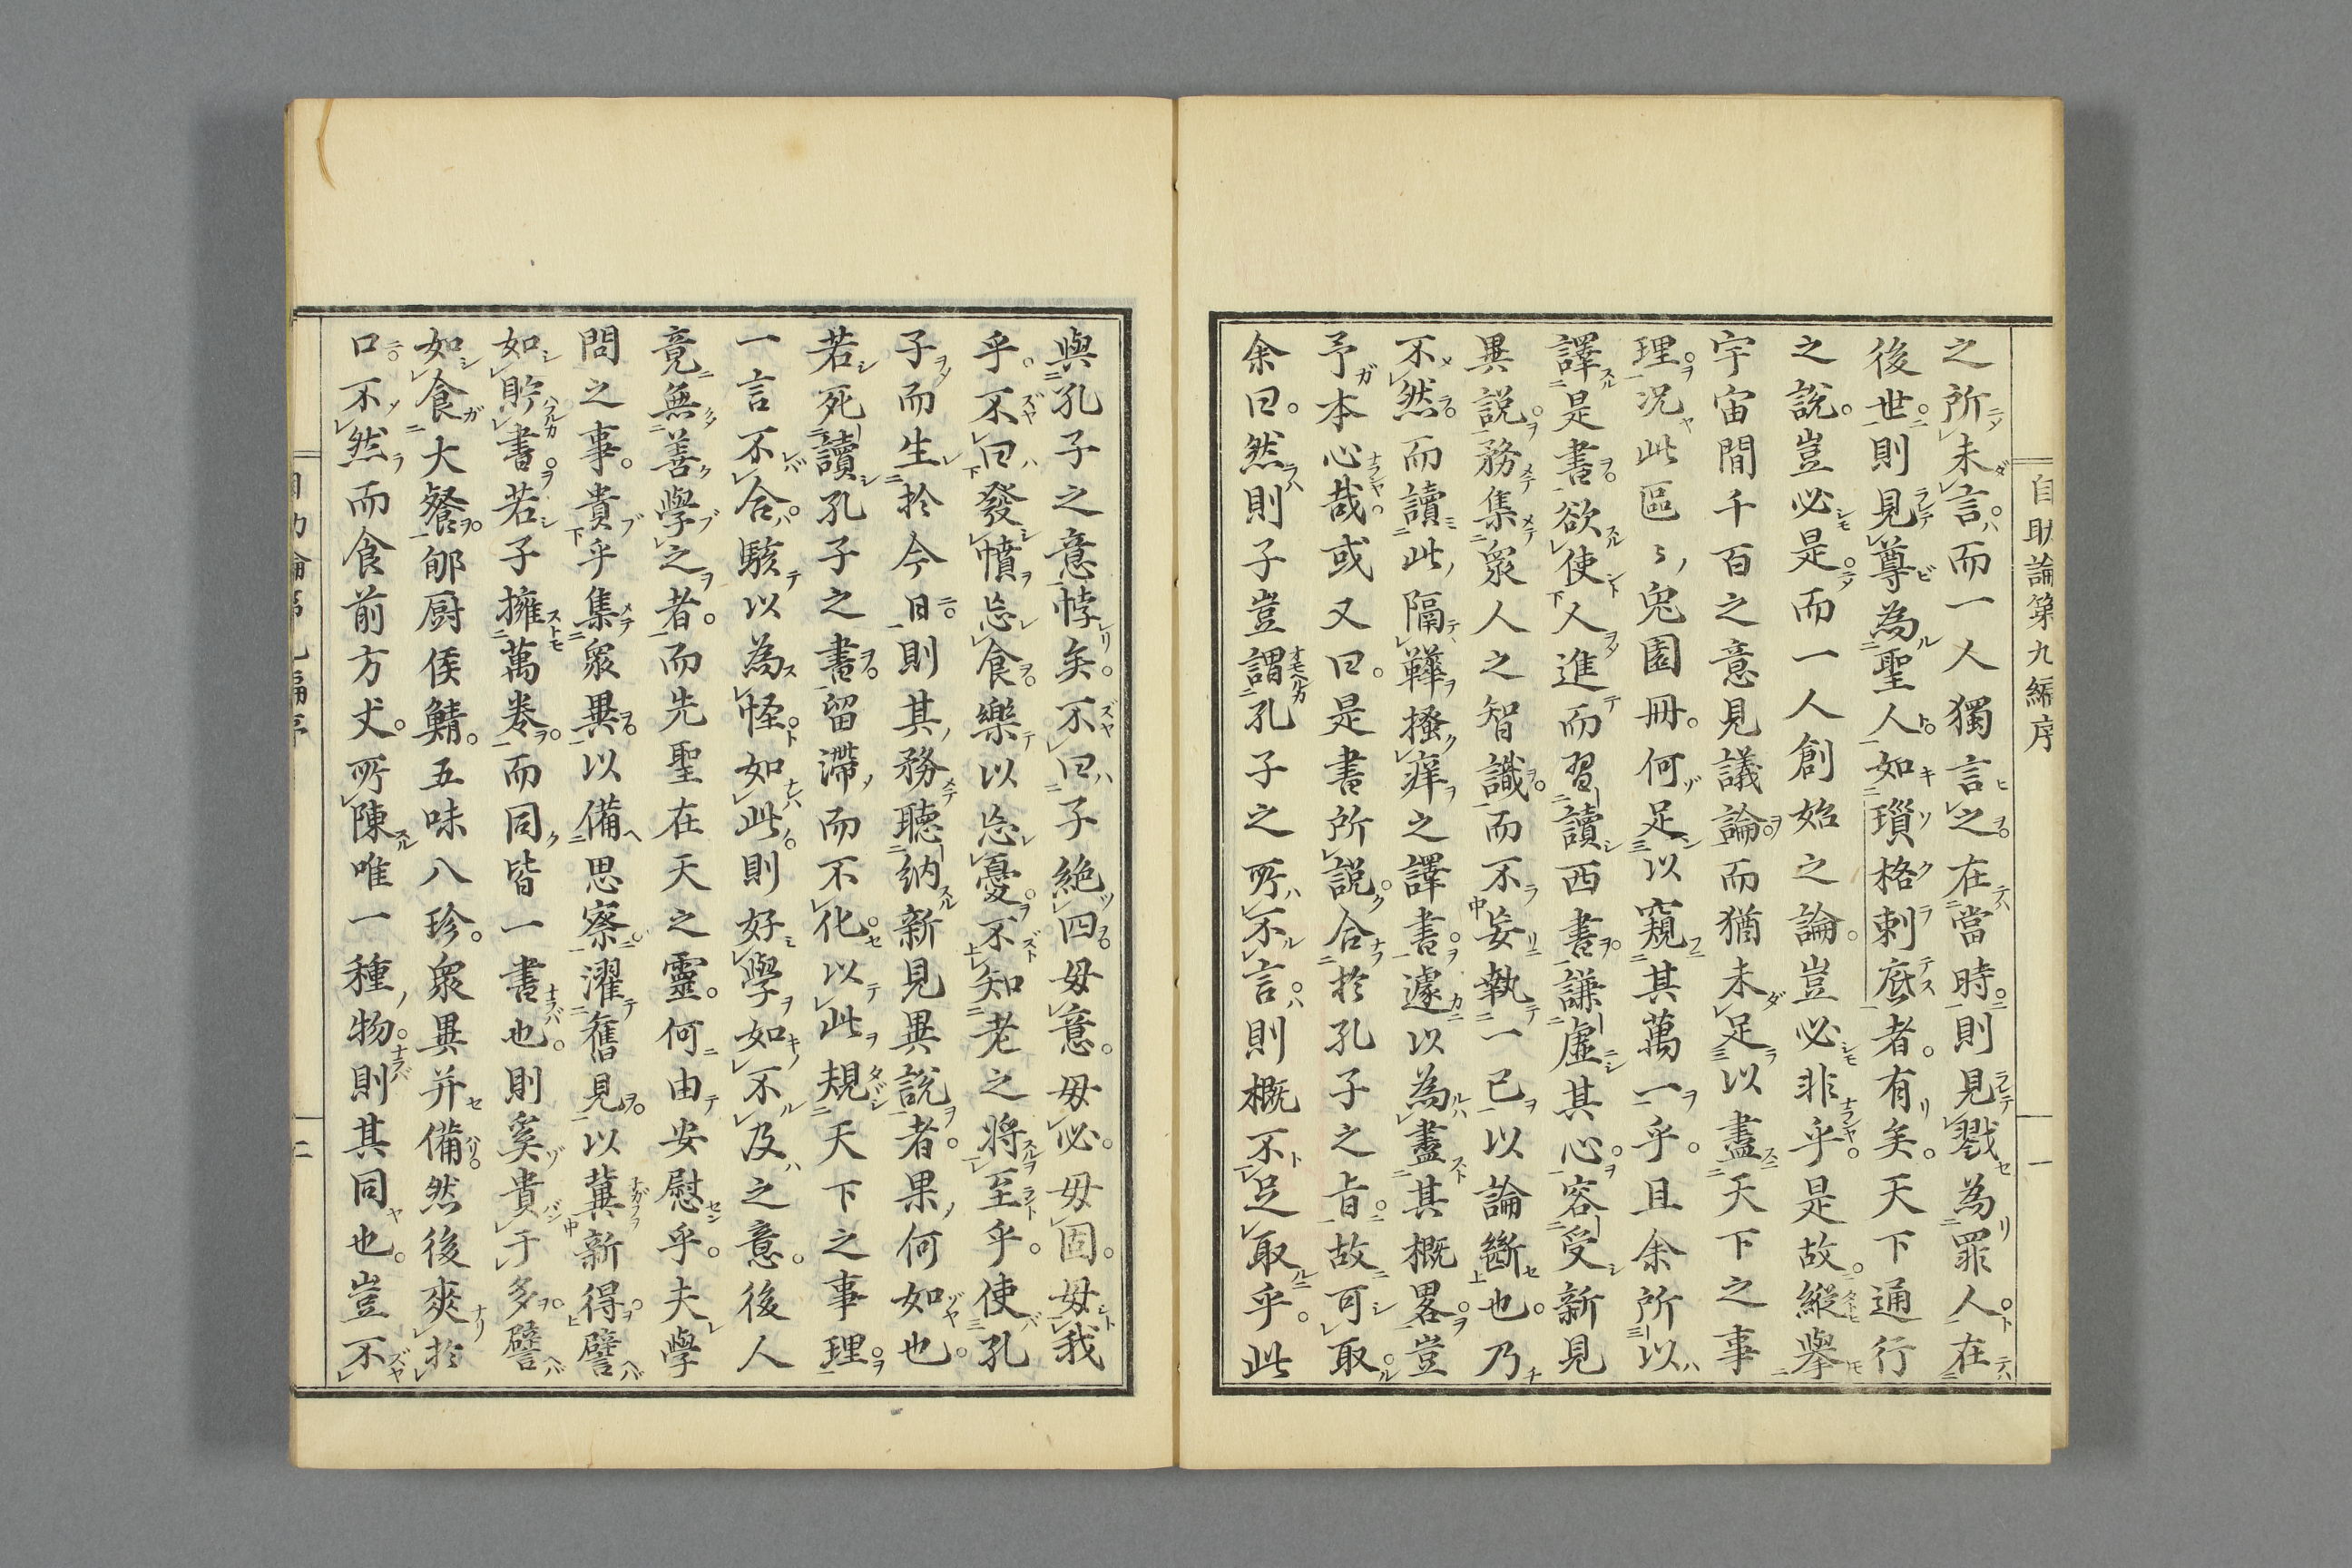 自助論第九編序
一
之所未言而一人獨言之在當時則見戮為罪人在
後世則見尊為聖人如瑣格剌底者有矣天下通行
之說豈必是而一人創始之論豈必非乎是故縱舉
宇宙間千百之意見議論而猶未足以盡天下之事
理況此區〻兔園冊何足以窺其萬一乎且余所以
譯是書欲使人進而習讀西書謙虛其心容受新見
異説務集衆人之智識而不妄執一己以論斷也乃
不然而讀此隔鞾搔痒之譯書遽以為盡其概畧豈
予本心哉或又曰是書所説合於孔子之旨故可取
余曰然則子豈謂孔子之所不言則概不足取乎此
與孔子之意悖矣不曰子絶四毋意毋必毋固毋我
乎不曰發憤忘食樂以忘憂不知老之將至乎使孔
子而生於今日則其務聽納新見異説者果何如也
若死讀孔子之書留滯而不化以此規天下之事理
一言不合駭以為怪如此則好學如不及之意後人
竟無善學之者而先聖在天之靈何由安慰乎夫學
問之事貴乎集衆異以備思察濯舊見以冀新得譬
如貯書若子擁萬卷而同皆一書也則奚貴于多譬
如食大餐郇厨侯鯖五味八珍衆異并備然後爽於
口不然而食前方丈所陳唯一種物則其同也豈不